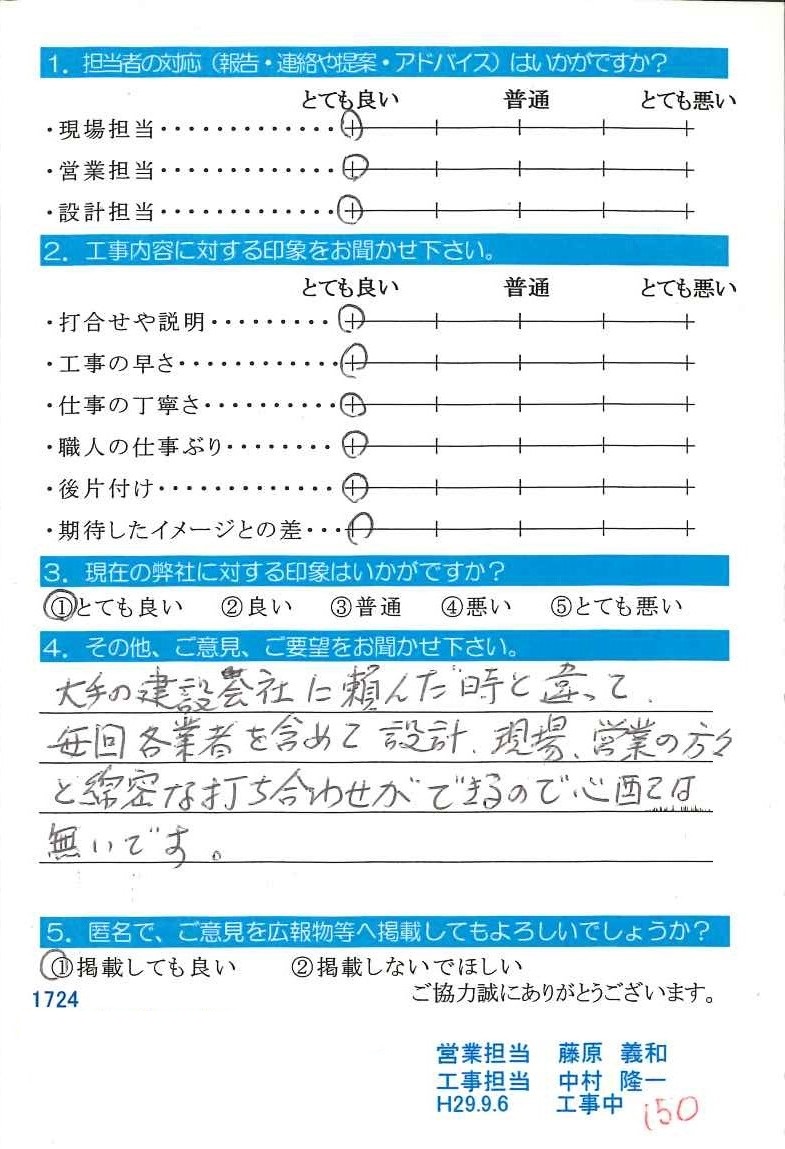 1. 担当者の対応(報告・連絡や提案・アドバイス)はいかがですか?
とても良い 普通 とても悪い
・現場担当・・・・・・・・・・・・・
・営業担当・・・・・・・・・・・・・
・設計担当・・・・・・・・・・・・・
2. 工事内容に対する印象をお聞かせ下さい。
とても良い 普通 とても悪い
・打合せや説明・・・・・・・・・
・工事の早さ・・・・・・・・・・・・
・仕事の丁寧さ・・・・・・・・・・
・職人の仕事ぶり・・・・・・・・
・後片付け・・・・・・・・・・・・・
・期待したイメージとの差・・・
3. 現在の弊社に対する印象はいかがですか?
①とても良い ②良い ③普通 ④悪い ⑤とても悪い
4. その他、ご意見、ご要望をお聞かせ下さい。
大手の建設会社に頼んだ時と違って、
毎回各業者を含めて設計、現場、営業の方々
と綿密な打ち合わせができるので心配は
無いです。
5. 匿名で、ご意見を広報物等へ掲載してもよろしいでしょうか?
①掲載しても良い ②掲載しないでほしい
ご協力誠にありがとうございます。
1724
営業担当 藤原 義和
工事担当 中村 隆一
H29.9.6 工事中
150